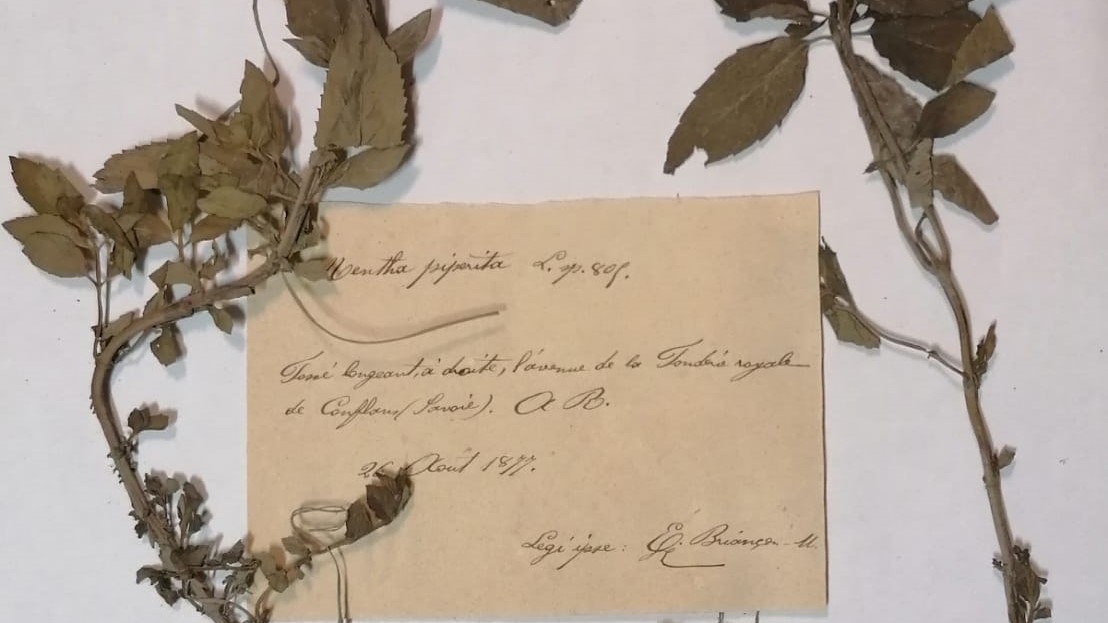 Mentha piperita L. sp. 805.
Fossé longeant, à droite, l'avenue de la Fonderie royale
de Conflans (Savoie). A R.
26 Août 1877.
Legi ipse: E. Briançon. M.